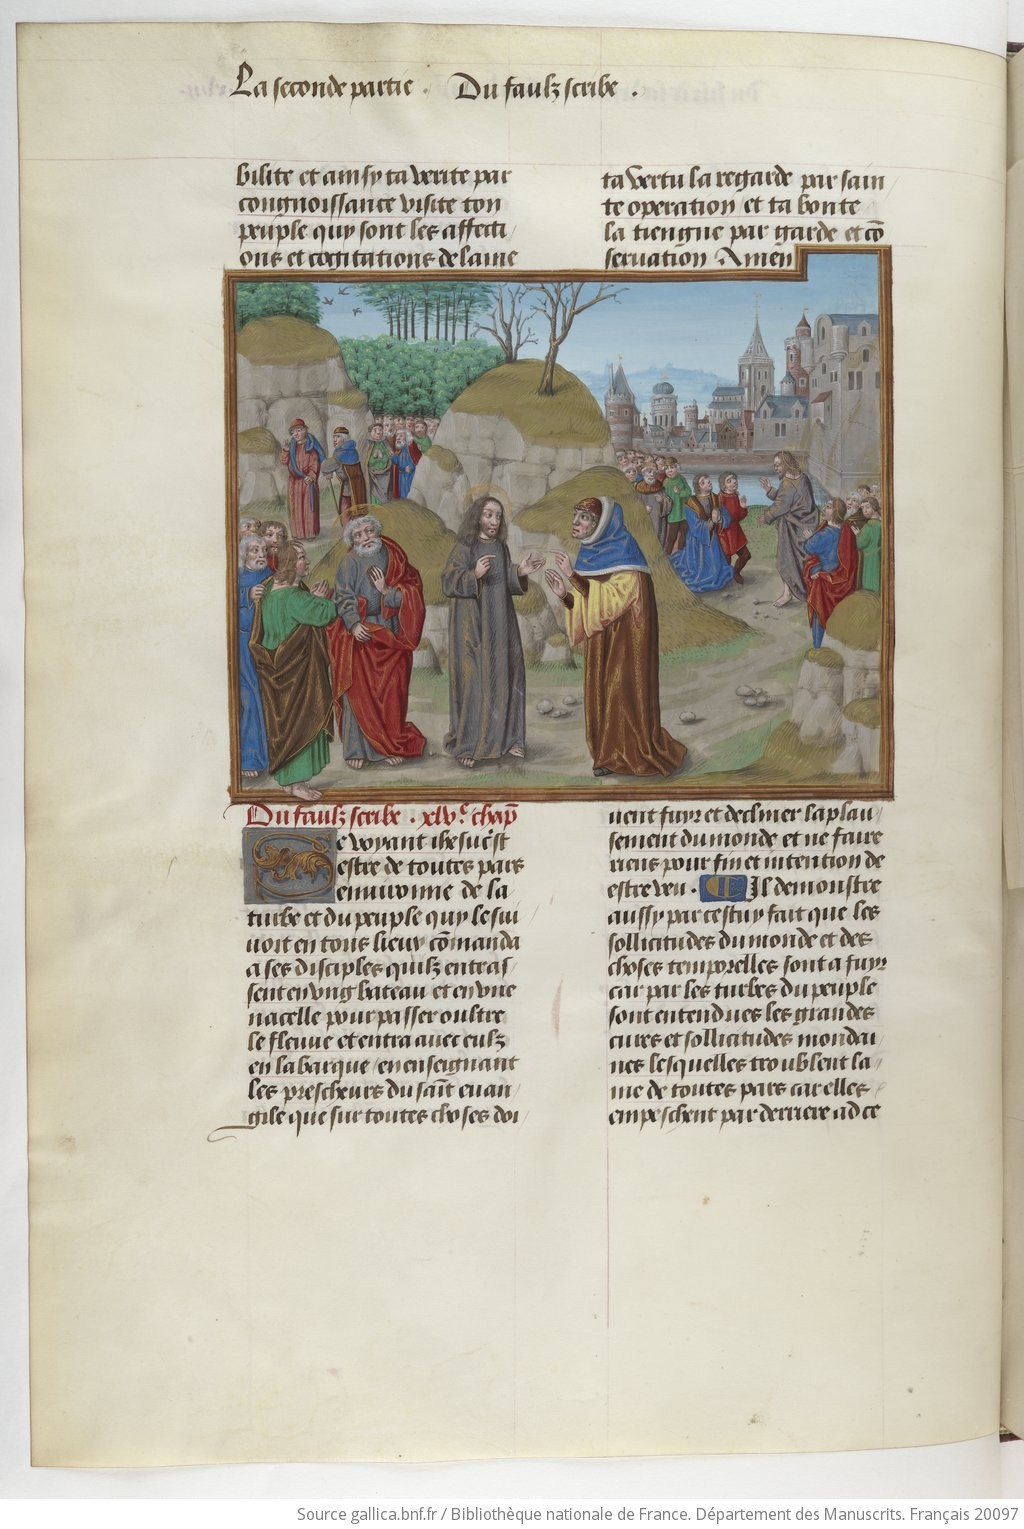 La seconde partie . Du faulz scribe .
bilite et ainsy ta verite par
congnoissance visite ton
peuple quy sont les affecti
ons et cogitations de lame
ta vertu la regarde par sain
te operation et ta bonte
la tiengne par garde et cō
servation Amen
Du faulz scribe . xlv.e chap̄
Ce voyant ihesucst
estre de toutes pars
environne de la
turbe et du peuple quy le sui
voit en tous lieux cōmanda
a ses disciples quilz entras
sent en ung bateau et en une
nacelle pour passer oultre
le fleuve et entra avec eulz
en la barque en enseignant
les prescheurs du sait̄ evan
gile que sur toutes choses doi
vent fuyr et decliner laplau
sement du monde et ne faire
riens pour fin et intention de
estre veu . Il demonstre
aussy par cestuy fait que les
sollicitudes du monde et des
choses temporelles sont a fuyr
car par les turbes du peuple
sont entendues les grandes
cures et sollicitudes mondai
nes lesquelles troublent la
me de toutes pars car elles
empeschent par derriere ad ce
Source gallica.bnf.fr / Bibliothèque nationale de France. Département des Manuscrits. Français 20097